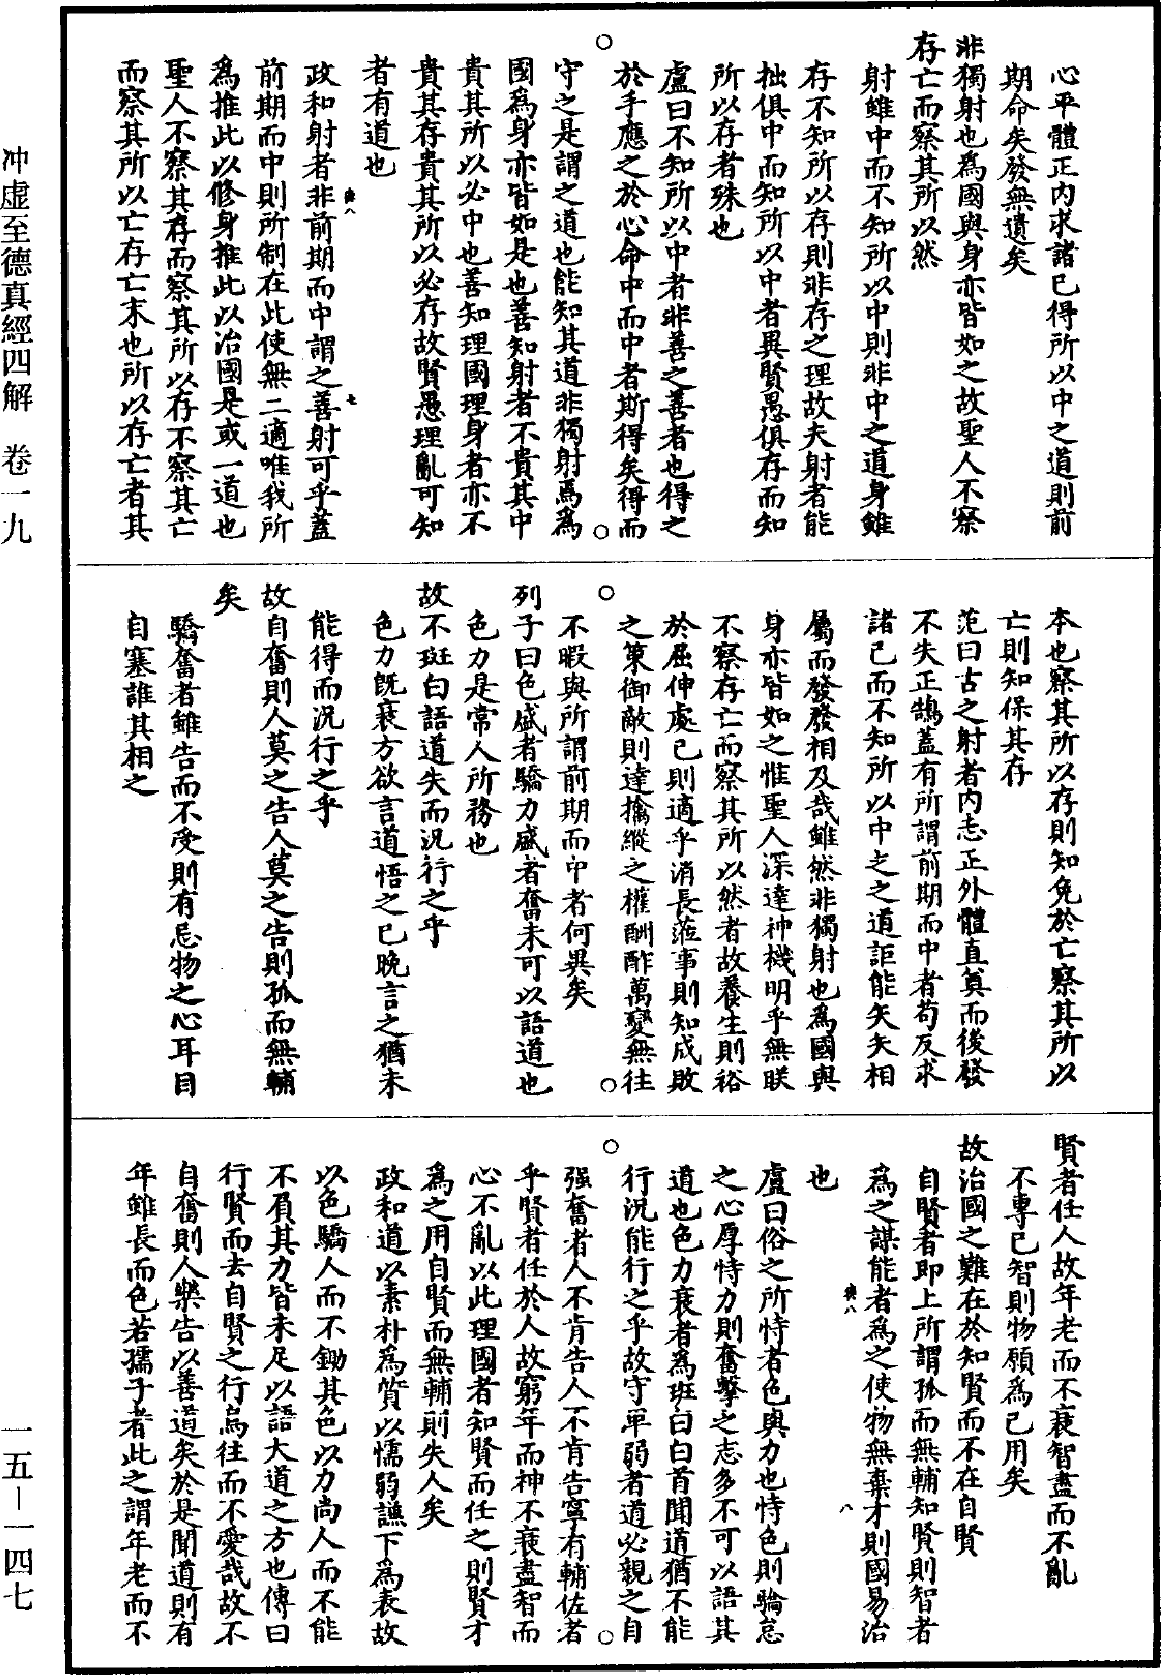 心平體正內求諸己得所以中之道則前
期命矣發無遺矣
非獨射也爲國與身亦皆如之故聖人不察
存亡而察其所以然
射雖中而不知所以中則非中之道身雖
存不知所以存則非存之理故夫射者能
拙俱中而知所以中者異賢愚俱存而知
所以存者殊也
盧曰不知所以中者非善之善者也得之
於手應之於心命中而中者斯得矣得而
守之是謂之道也能知其道非獨射焉爲
國爲身亦皆如是也善知射者不貴其中
貴其所以必中也善知理國理身者亦不
貴其存貴其所以必存故賢愚理亂可知
者有道也
政和射者非前期而中謂之善射可乎蓋
前期而中則所制在此使無二適唯我所
爲推此以修身推此以治國是或一道也
聖人不察其存而察其所以存不察其亡
而察其所以亡存亡末也所以存亡者其
本也察其所以存則知免於亡察其所以
亡則知保其存
范曰古之射者內志正外體直莫而後發
不失正鵠蓋有所謂前期而中者苟反求
諸己而不知所以中之之道詎能矢矢相
屬而發發相及哉雖然非獨射也爲國與
身亦皆如之惟聖人深達神機明乎無眹
不察存亡而察其所以然者故養生則裕
於屈伸處己則適乎消長蒞事則知成敗
之策御敵則達擒縱之權酬酢萬變無往
不暇與所謂前期而中者何異矣
列子曰色盛者驕力盛者奮未可以語道也
色力是常人所務也
故不斑白語道失而況行之乎
色力既衰方欲言道悟之已晚言之猶未
能得而況行之乎
故自奮則人莫之告人莫之告則孤而無輔
矣
驕奮者雖告而不受則有忌物之心耳目
自塞誰其相之
賢者任人故年老而不衰智盡而不亂
不專己智則物願爲己用矣
故治國之難在於知賢而不在自賢
自賢者即上所謂孤而無輔知賢則智者
爲之謀能者爲之使物無棄才則國易治
也
盧曰俗之所恃者色與力也恃色則驕怠
之心厚恃力則奮擊之志多不可以語其
道也色力衰者爲斑白白首聞道猶不能
行況能行之乎故守單弱者道必親之自
强奮者人不肯告人不肯告寧有輔佐者
乎賢者任於人故窮年而神不衰盡智而
心不亂以此理國者知賢而任之則賢才
爲之用自賢而無輔則失人矣
政和道以素朴爲質以懦弱謙下爲表故
以色驕人而不鋤其色以力尚人而不能
不負其力皆未足以語大道之方也傳曰
行賢而去自賢之行烏往而不愛哉故不
自奮則人樂告以善道矣於是聞道則有
年雖長而色若孺子者此之謂年老而不
冲虛至德真經四解　卷一九
一五－一四七